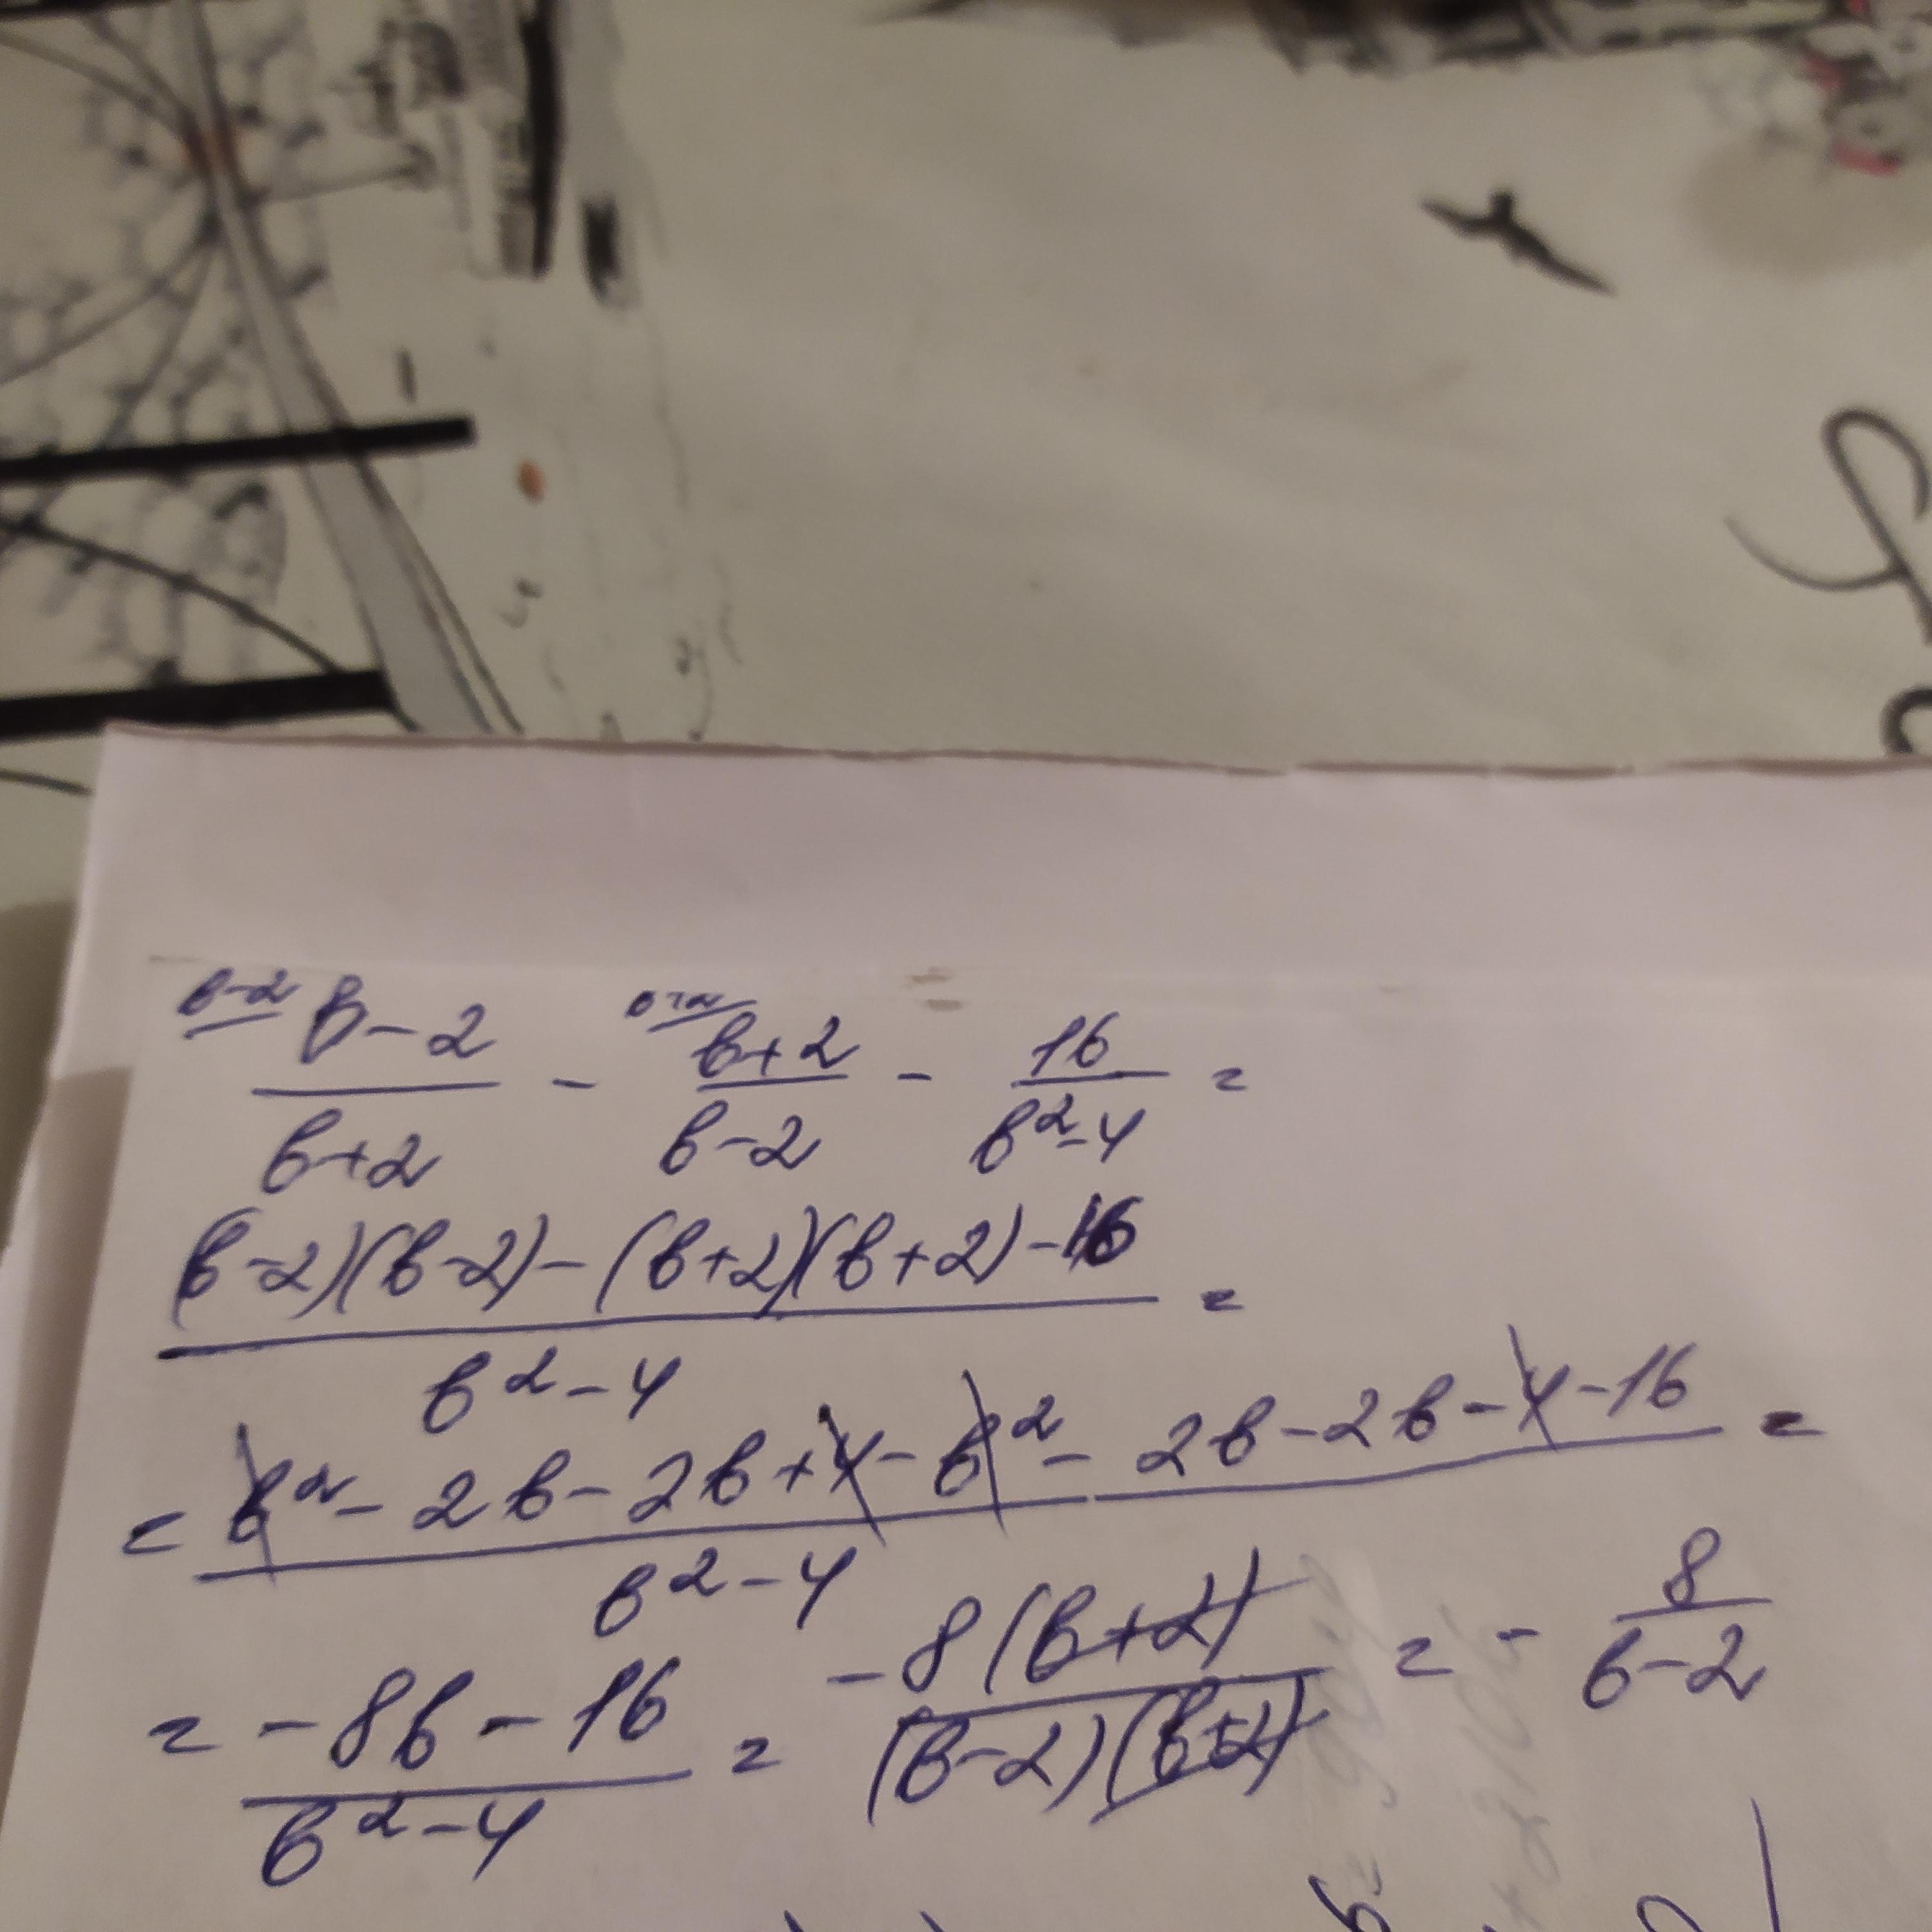 b-2 b-2 / b+2 - b+2 b+2 / b-2 - 16 / b²-4 =
(b-2)(b-2)-(b+2)(b+2)-16 / b²-4 =
= b²-2b-2b+4-b²-2b-2b-4-16 / b²-4 =
= -8b-16 / b²-4 = -8(b+2) / (b-2)(b+2) = - 8 / b-2